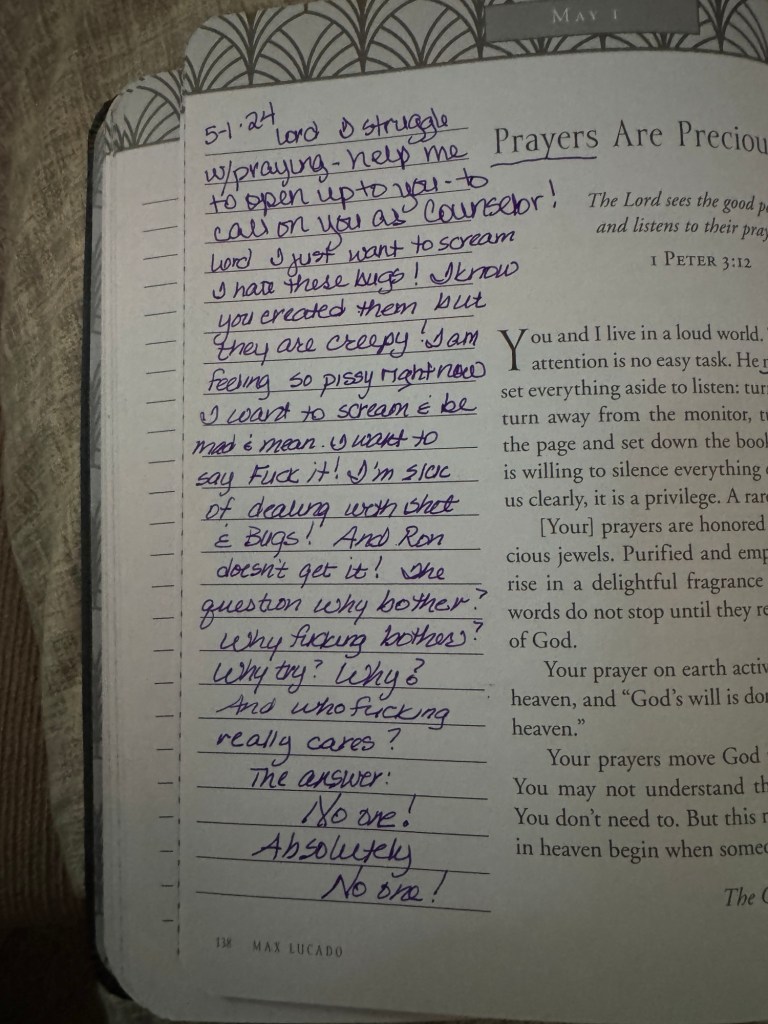 MAY 1
5-1-24 Lord I struggle
w/praying - help me
to open up to you - to
call on you as Counselor!
Lord I just want to scream
I hate these bugs! I know
you created them but
they are creepy! I am
feeling so pissy right now
I want to scream & be
mad & mean. I want to
say Fuck it! I'm sick
of dealing with shet
& Bugs! And Ron
doesn't get it! The
question why bother?
Why fucking bother?
Why try? Why?
And who fucking
really cares?
The answer:
No one!
Absolutely
No one!
138 MAX LUCADO
Prayers Are Preciou
The Lord sees the good p
and listens to their pray
1 PETER 3:12
You and I live in a loud world.
attention is no easy task. He
set everything aside to listen: tur
turn away from the monitor, t
the page and set down the boo
is willing to silence everything
us clearly, it is a privilege. A rar
[Your] prayers are honored
cious jewels. Purified and emp
rise in a delightful fragrance
words do not stop until they re
of God.
Your prayer on earth activ
heaven, and “God’s will is do
heaven.”
Your prayers move God
You may not understand th
You don’t need to. But this
in heaven begin when some
The